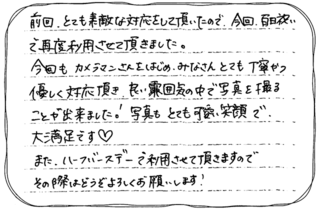 前回、とても素敵な対応をして頂いたので、今回、百日祝い
で再度利用させて頂きました。
今回も カメラマンさんをはじめ、みなさん とても 丁寧かつ
優しく対応頂き、良い雰囲気の中で写真を撮る
ことが出来ました。! 写真も とても 可愛い 笑顔 で、
大満足です♡
また、ハーフバースデー で 利用させて頂きますので
その際はどうぞよろしくお願いします!